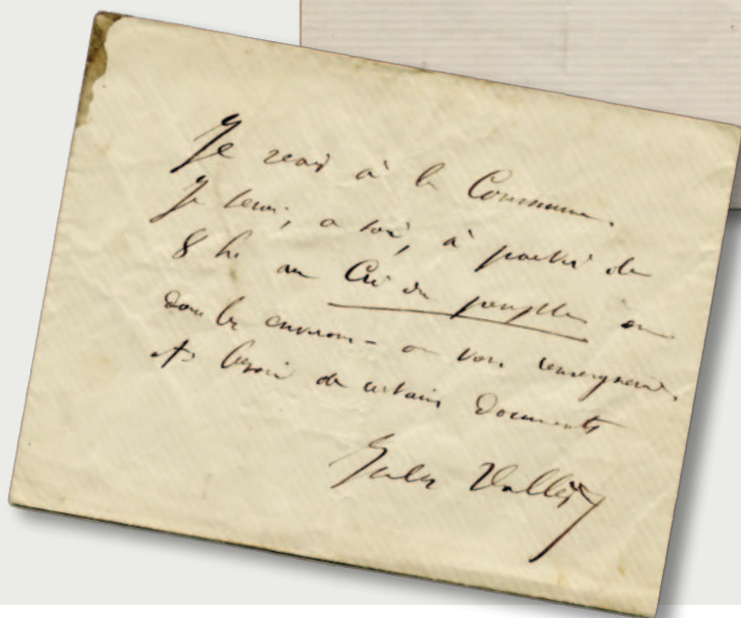 Je vais à la Commune.
Je serai, ce soir, à partir de
8 h. au Cri du peuple ou
dans les environs - on vous renseignera.
besoin de certains documents
Jules Vallès